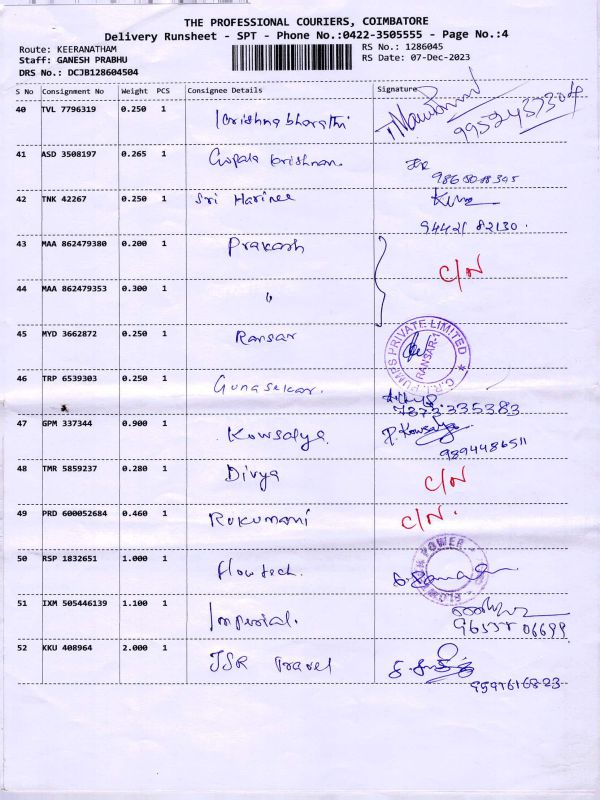 THE PROFESSIONAL COURIERS, COIMBATORE
Delivery Runsheet - SPT - Phone No.:0422-3505555 - Page No.:4
Route: KEERANATHAM
RS No.: 1286045
Staff: GANESH PRABHU
RS Date: 07-Dec-2023
DRS No.: DCJB128604504
S No Consignment No Weight PCS Consignee Details Signature
40 TVL 7796319 0.250 1 Krishna bharathi
41 ASD 3508197 0.265 1 Gopala krishnan.
42 TNK 42267 0.250 1 Sri Harinee
94421 82130.
43 MAA 862479380 0.200 1 Prakash C/N
44 MAA 862479353 0.300 1 "
45 MYD 3662872 0.250 1 Ransar
C.R.I. PUMPS PRIVATE LIMITED
RANSAR-1
46 TRP 6539303 0.250 1 Gunasekar.
7373335383
47 GPM 337344 0.900 1 Kowsalya P. Kowsalya
9894486511
48 TMR 5859237 0.280 1 Divya C/N
49 PRD 600052684 0.460 1 Rukumani C/N.
50 RSP 1832651 1.000 1 flowtech.
POWER
51 IXM 505446139 1.100 1 Imperial.
52 KKU 408964 2.000 1 JSR Travel